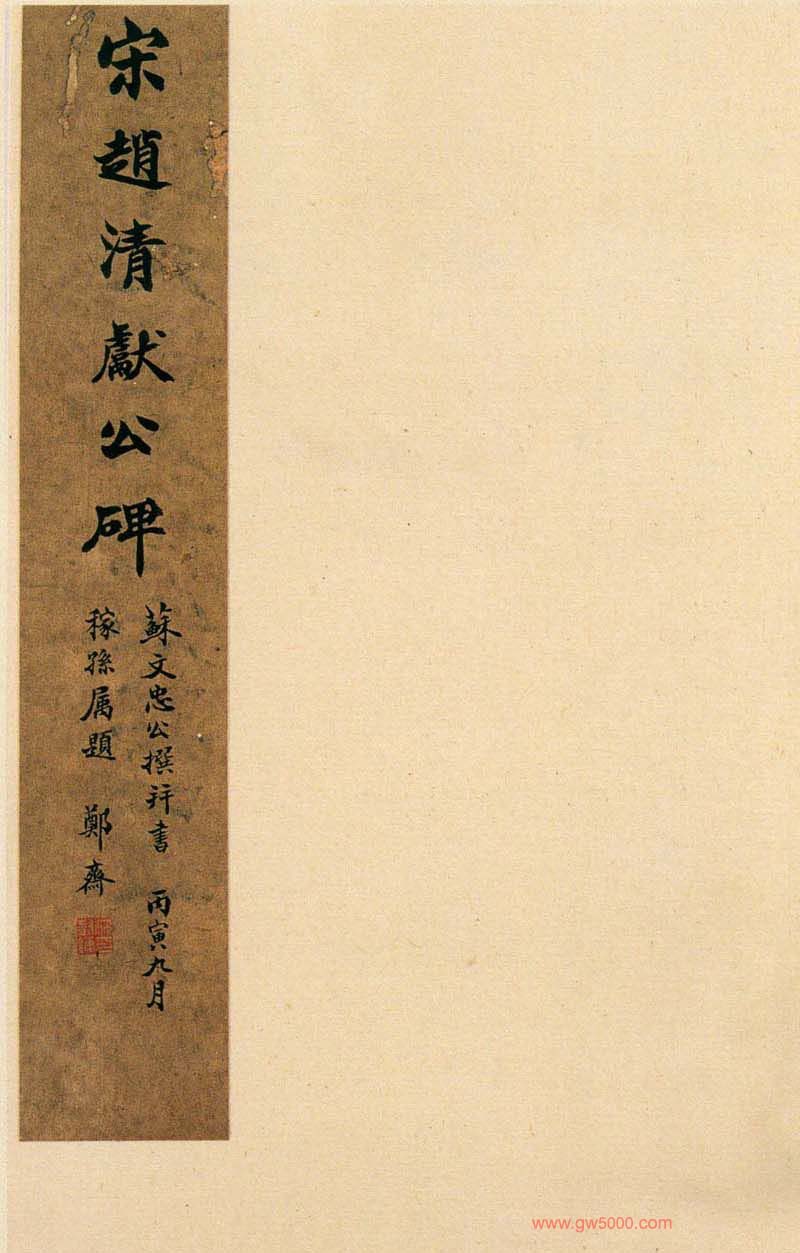 宋趙清獻公碑
蘇文忠公撰并書 丙寅九月
稼孫属題 鄭齋
www.gw5000.com